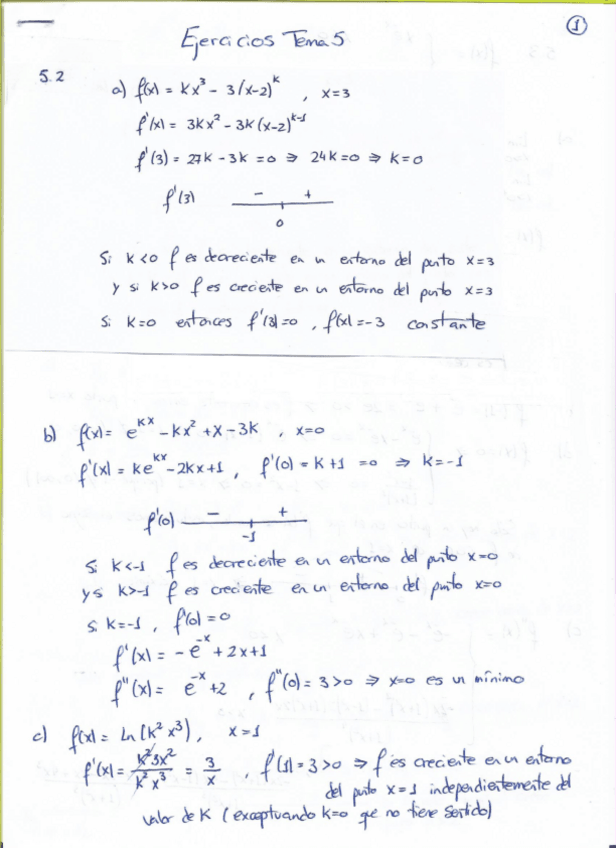 1
Ejercicios Tema 5
5.2
a) f(x) = kx³ - 3(x-2)^k , x=3
f'(x) = 3kx² - 3k(x-2)^(k-1)
f'(3) = 27k - 3k = 0 ⇒ 24k = 0 ⇒ k = 0
f'(3) - +
0
Si k<0 f es decreciente en un entorno del punto x=3
y si k>0 f es creciente en un entorno del punto x=3
Si k=0 entonces f'(3)=0 , f(x)=-3 constante
b) f(x) = e^(kx) - kx² + x - 3k , x=0
f'(x) = ke^(kx) - 2kx + 1 , f'(0) = k+1 = 0 ⇒ k=-1
f'(0) - +
-1
Si k<-1 f es decreciente en un entorno del punto x=0
y si k>-1 f es creciente en un entorno del punto x=0
si k=-1 , f'(0)=0
f'(x) = -e^(-x) + 2x + 1
f''(x) = e^(-x) + 2 , f''(0) = 3 > 0 ⇒ x=0 es un mínimo
c) f(x) = Ln(k² x³) , x=1
f'(x) = k²3x² / k² x³ = 3/x , f'(1) = 3 > 0 ⇒ f es creciente en un entorno
del punto x=1 independientemente del
valor de K (exceptuando k=0 que no tiene sentido)